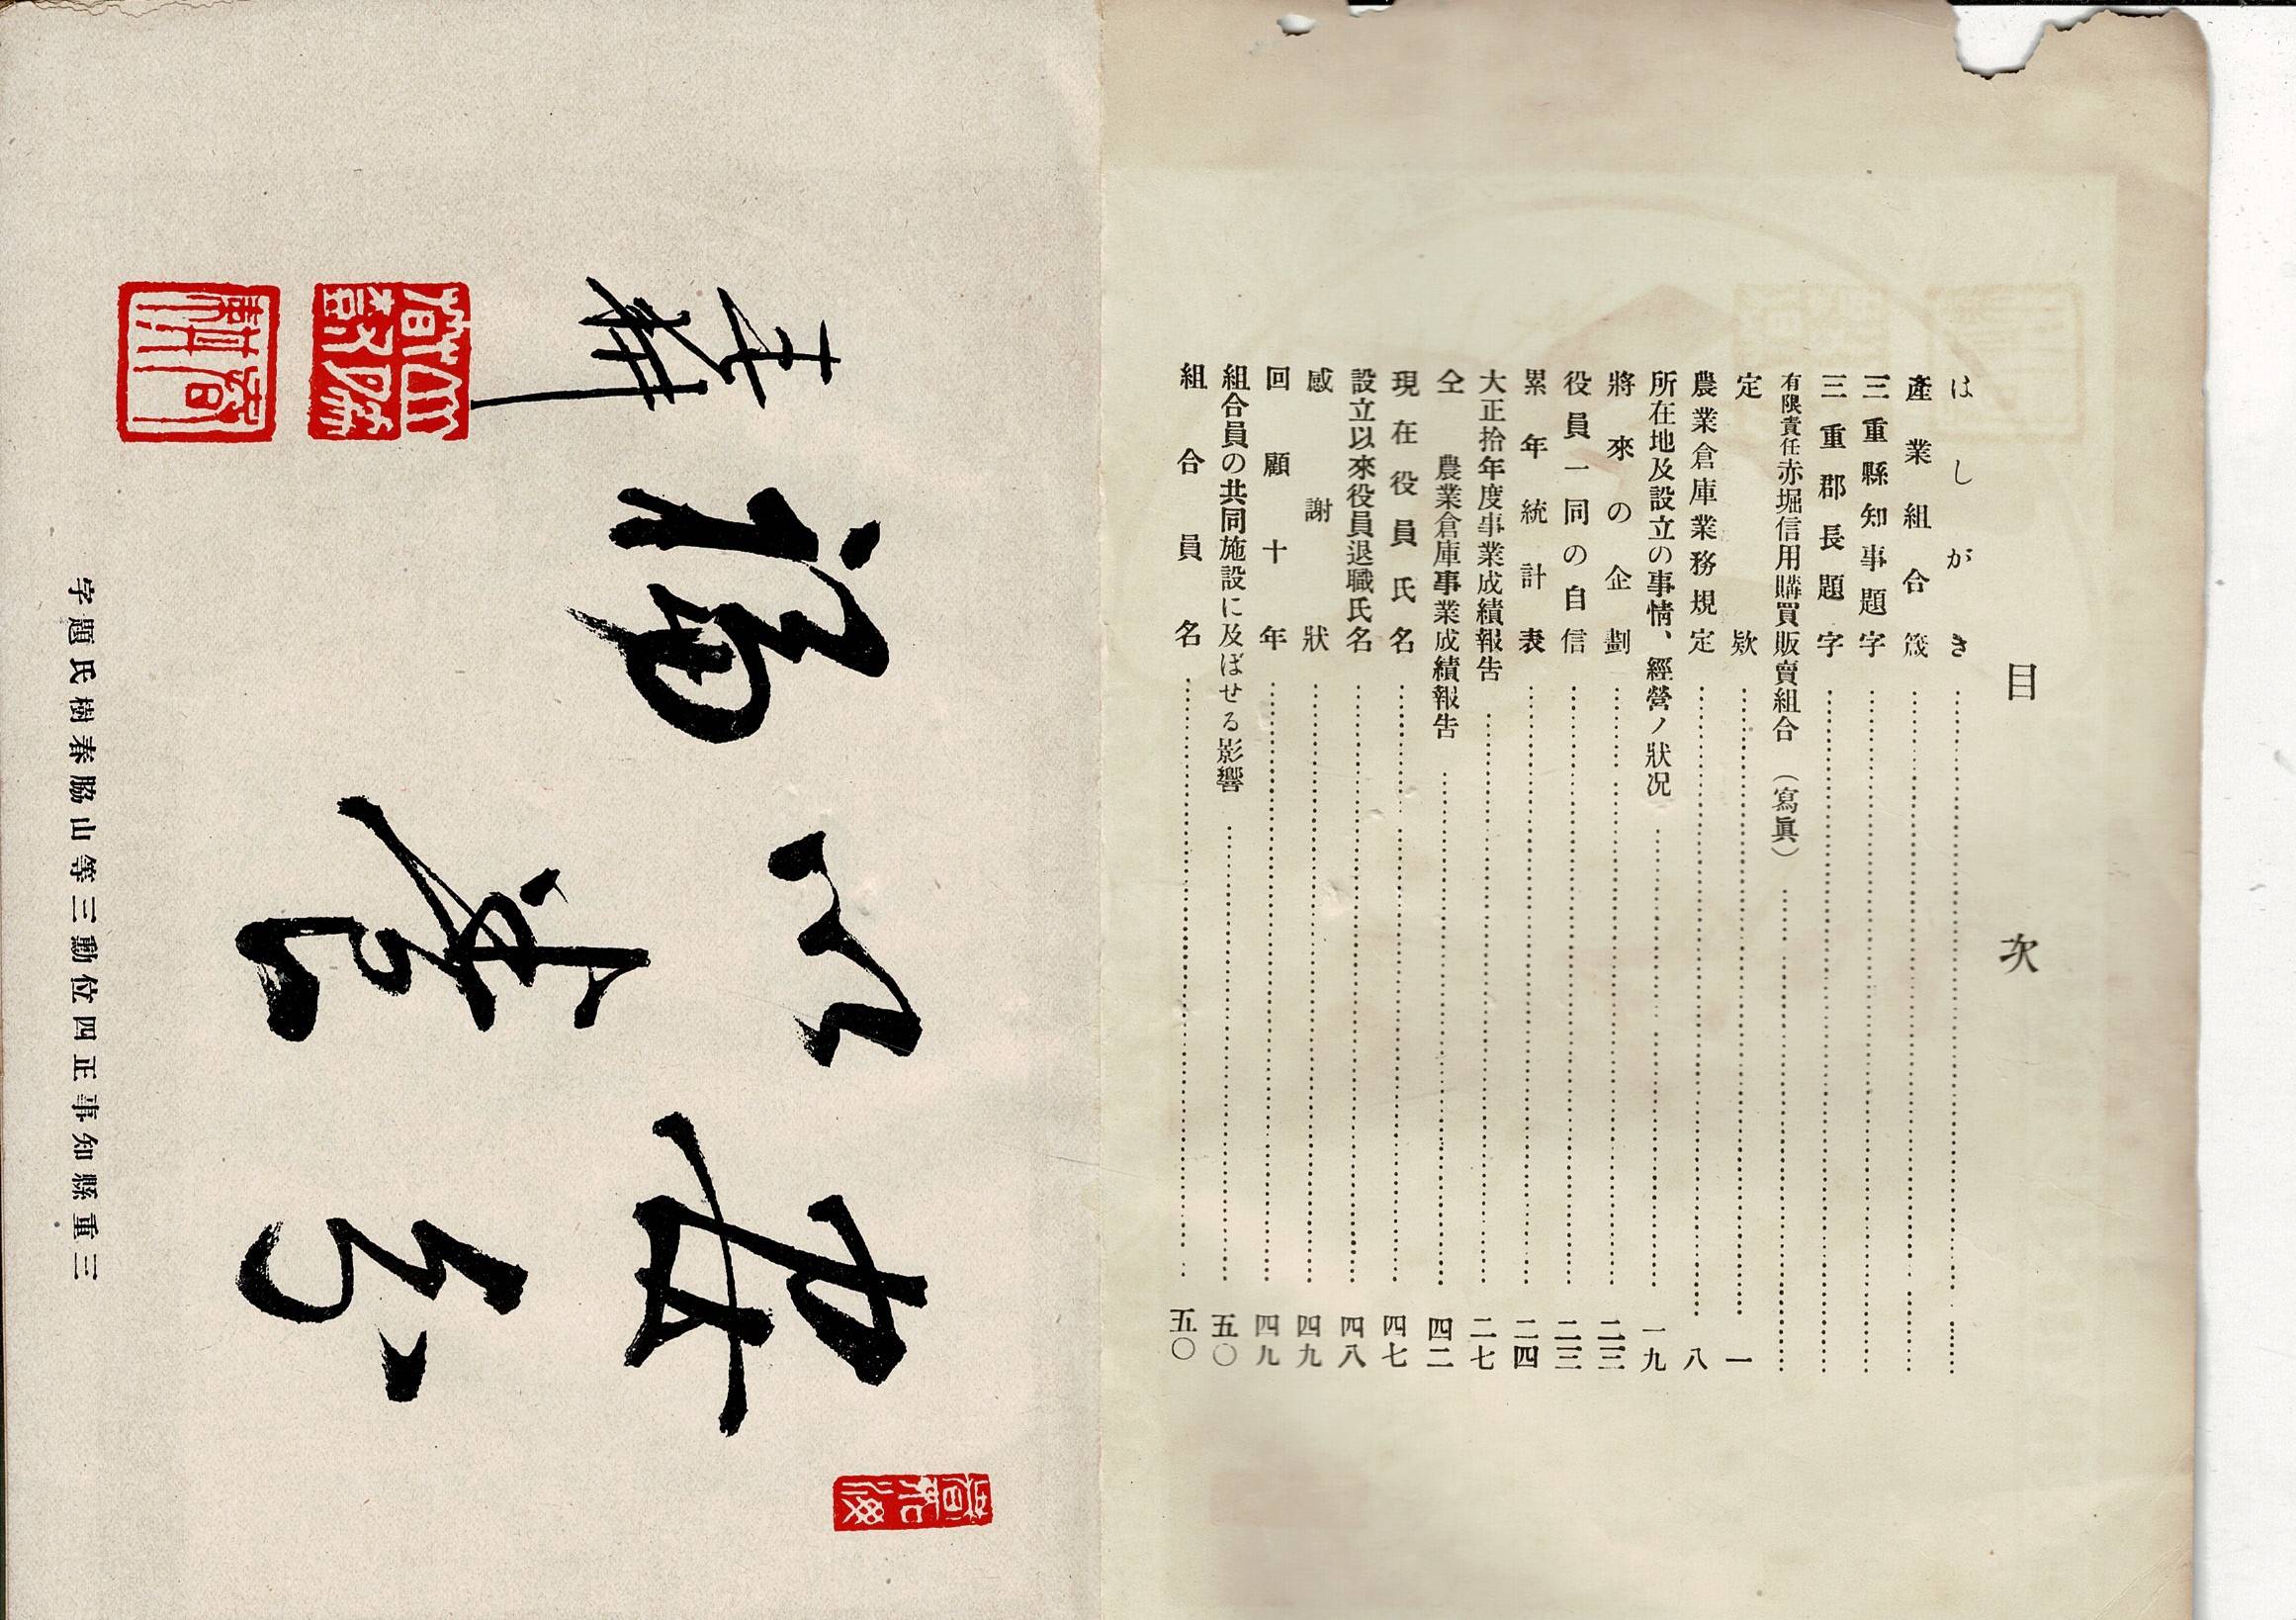 目次
はしがき
產業組合箴
三重縣知事題字
三重郡長題字
有限責任赤堀信用購買販賣組合（寫眞）
定欵 一
農業倉庫業務規定 八
所在地及設立の事情、經營ノ狀况 一九
將來の企劃 二三
役員一同の自信 二三
累年統計表 二四
大正拾年度事業成績報告 二七
仝農業倉庫事業成績報告 四二
現在役員氏名 四七
設立以來役員退職氏名 四八
感謝狀 四九
回顧十年 四九
組合員の共同施設に及ぼせる影響 五〇
組合員名 五〇
三重縣知事正四位勳三等山脇春樹氏題字